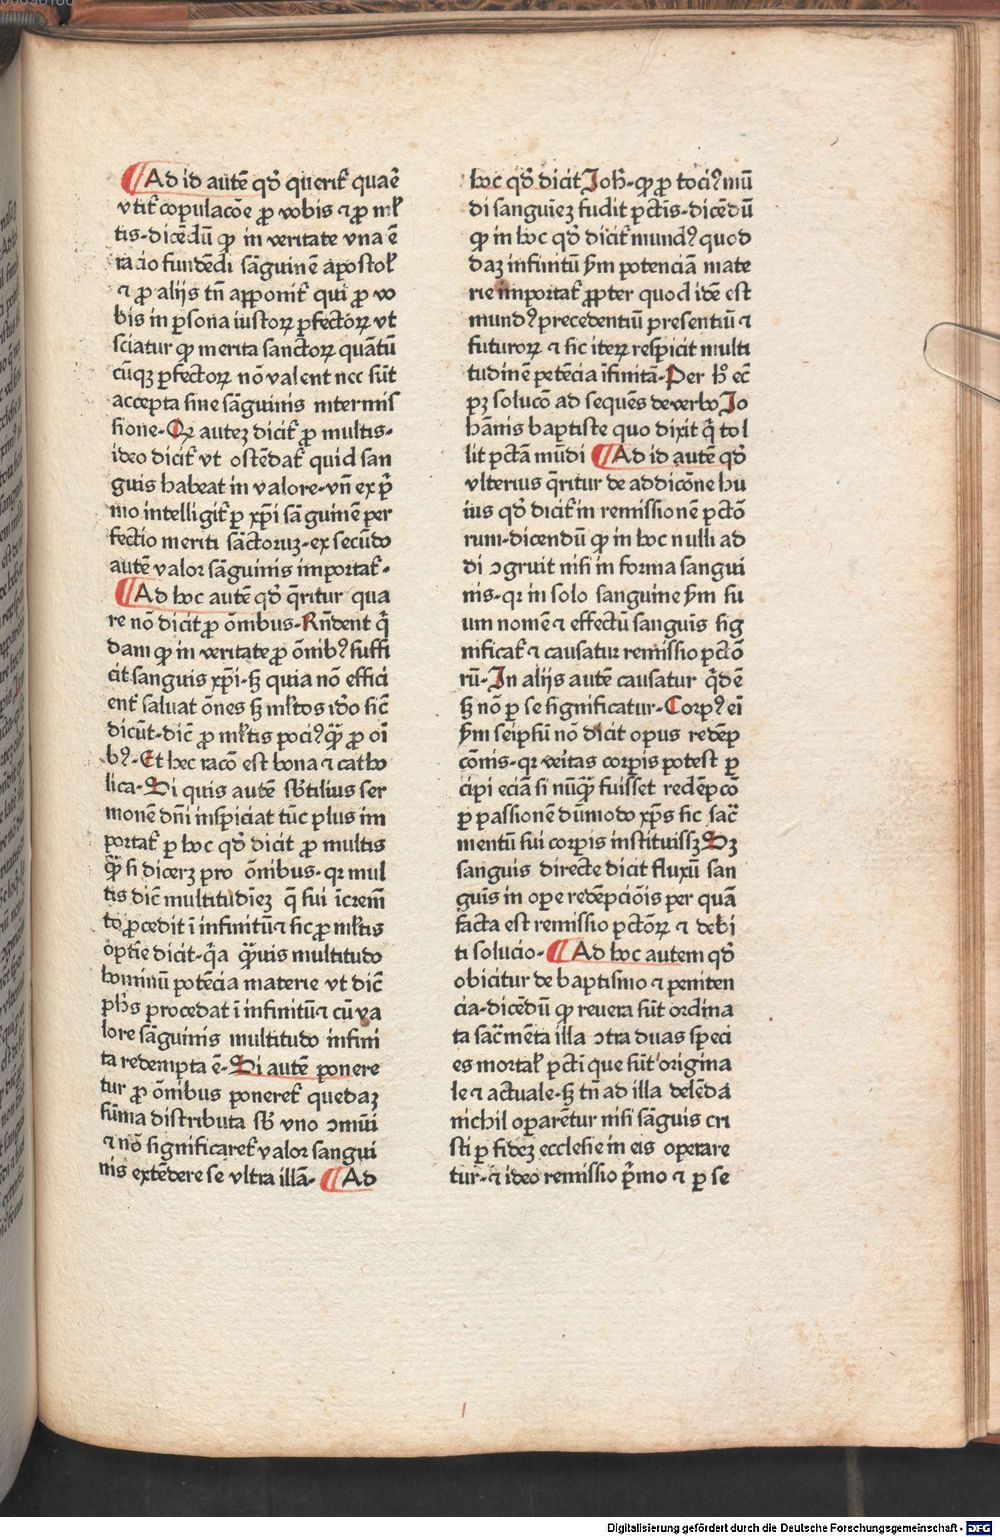 Ad id autē qd̄ querit᷑ quaē
vtit᷑ copulacōe ꝓ vobis ⁊ ꝓ ml̄
tis·dicēdū ꝙ in veritate vna ē
racio fundēdi sāguinē apostol̄
⁊ ꝓ alijs tn̄ apponit᷑ qui ꝓ vo
bis in ꝑsona iustoꝝ ꝑfectoꝝ vt
sciatur ꝙ merita sanctoꝝ quātū
cūqꝫ ꝑfectoꝝ nō valent nec sūt
accepta sine sāguinis intermis
sione·Qꝛ auteꝫ dicit᷑ ꝓ multis·
ideo dicit᷑ vt ostēdat᷑ quid san
guis habeat in valore·vn̄ ex pͥ
mo intelligit᷑ ꝑ xp̄i sāguinē per
fectio meriti sāctoruꝫ·ex secūdo
autē valor sāguinis importat᷑·
Ad hoc autē qd̄ q̄ritur qua
re nō dicit ꝓ ōnibus·Rn̄dent q̄
dam ꝙ in veritate ꝓ ōnibꝰ suffi
cit sanguis xp̄i·sꝫ quia nō effici
ent᷑ saluat ōnes sꝫ ml̄tos idō sic̄
dicūt·dic̄ ꝓ ml̄tis pociꝰ qͣꝫ ꝓ oī
bꝰ·Et hec racō est bona ⁊ catho
lica·Si quis autē sb̄tilius ser
monē dn̄i inspiciat tūc plus im
portat᷑ ꝑ hoc qd̄ dicit ꝓ multis
qͣꝫ si diceꝝ pro ōnibus·qꝛ mul
tis dic̄ multitudieꝫ q̄ sui īcrem̄
to ꝓcedit ī infinitū ⁊ sic ꝓ ml̄tis
optīe dicit·qͣa qͣꝫuis multitudo
hominū potēcia materie vt dic̄
ph̄s procedat ī infinitū ⁊ cū va
lore sāguinis multitudo infini
ta redempta ē·Si autē ponere
tur ꝓ ōnibus poneret᷑ quedaꝫ
sūma distributa sb̄ vno ɔmūi
⁊ nō significaret᷑ valor sangui
nis extēdere se vltra illā· Ad
hoc qd̄ dicit Joh̄·ꝙ ꝓ tociꝰ mū
di sanguieꝫ fudit pctīs·dicēdū
ꝙ in hoc qd̄ dicit᷑ mundꝰ quod
daꝫ infinitū ẜm potenciā mate
rie importat᷑ ꝓpter quod idē est
mundꝰ precedentiū presentiū ⁊
futuroꝝ ⁊ sic iteꝝ respicit multi
tudinē petēcia īfinitā·Per h̄ ec̄
pꝫ solucō ad sequēs de verbo Jo
hānis baptiste quo dixit q̄ tol
lit pctā mūdi Ad id autē qd̄
vlterius q̄ritur de addicōne hu
ius qd̄ dicit᷑ in remissionē pctō
rum·dicendū ꝙ in hoc nulli ad
di ɔgruit nisi in forma sangui
nis·qꝛ in solo sanguine ẜm su
um nomē ⁊ effectū sanguis sig
nificat᷑ ⁊ causatur remissio pctō
rū·In alijs autē causatur qͥdē
sꝫ nō ꝑ se significatur·Corpꝰ eī
ẜm seipsū nō dicit opus redēp
cōnis·qꝛ veītas corꝑis potest ꝑ
cipi eciā si nūqͣꝫ fuisset redēpcō
ꝑ passionē dūmodo xp̄s sic sac̄
mentū sui corꝑis instituissꝫ Sꝫ
sanguis directe dicit fluxū san
guīs in oꝑe redēpciōis per quā
facta est remissio pctōꝝ ⁊ debi
ti solucio· Ad hoc autem qd̄
obicitur de baptismo ⁊ peniten
cia·dicēdū ꝙ reuera sūt ordina
ta sac̄mēta illa ɔtra duas speci
es mortal̄ pcti que sūt origina
le ⁊ actuale·sꝫ tn̄ ad illa delēda
nichil oparētur nisi sāguis cri
sti ꝑ fideꝫ ecclesie in eis operare
tur·⁊ ideo remissio pͥmo ⁊ ꝑ se
Digitalisierung gefördert durch die Deutsche Forschungsgemeinschaft - DFG